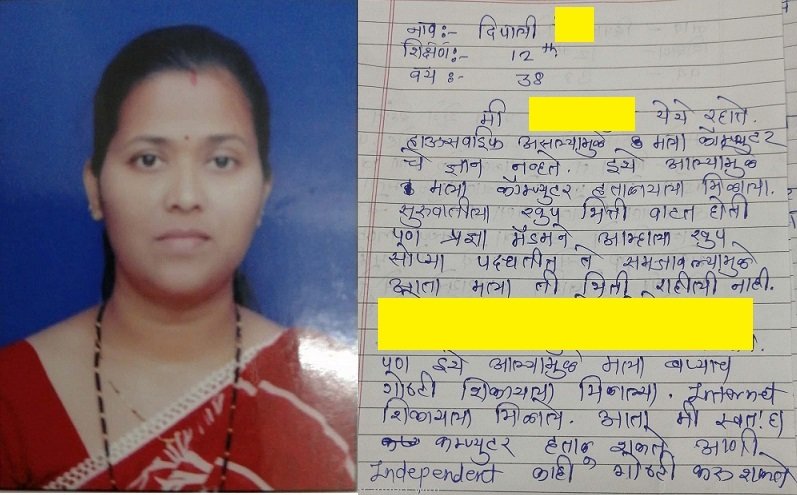 नाव:- दिपाली
शिक्षण:- 12 th
वय :- 38
मी येथे रहाते.
हाऊसवाईफ असल्यामुळे मला कॉम्प्युटर
चे ज्ञान नव्हते. इथे आल्यामुळे
मला कॉम्प्युटर हताळायला मिळाला.
सुरुवातीला खुप भिती वाटत होती
पण प्रज्ञा मॅडमने आम्हाला खुप
सोप्या पद्धतीत ते समजावल्यामुळे
आता मला ती भिती राहीली नाही.
पण इथे आल्यामुळे मला बऱ्याच
गोष्टी शिकायला मिळाल्या. Internet
शिकायला मिळाले. आता मी स्वत:हा
कम्प्युटर हताळू शकते आणी
Independent काही गोष्टी करू शकते